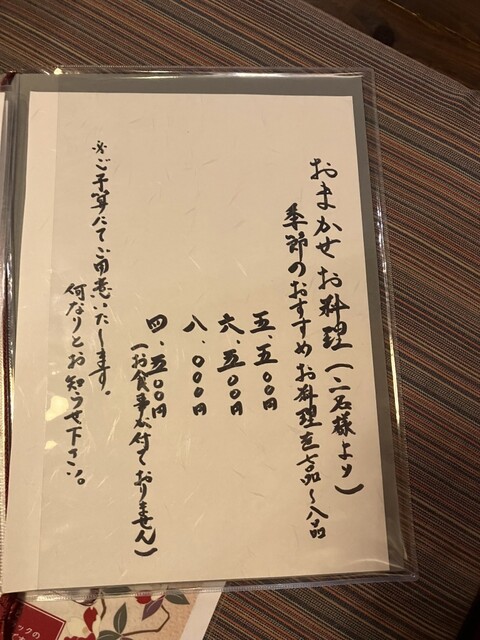 おまかせお料理（二名様より）
季節のおすすめお料理を七品〜八品
五、五〇〇円
六、五〇〇円
八、〇〇〇円
四、五〇〇円
（お食事が付ておりません）
※ご予算にてご用意いたします。
何なりとお知らせ下さい。